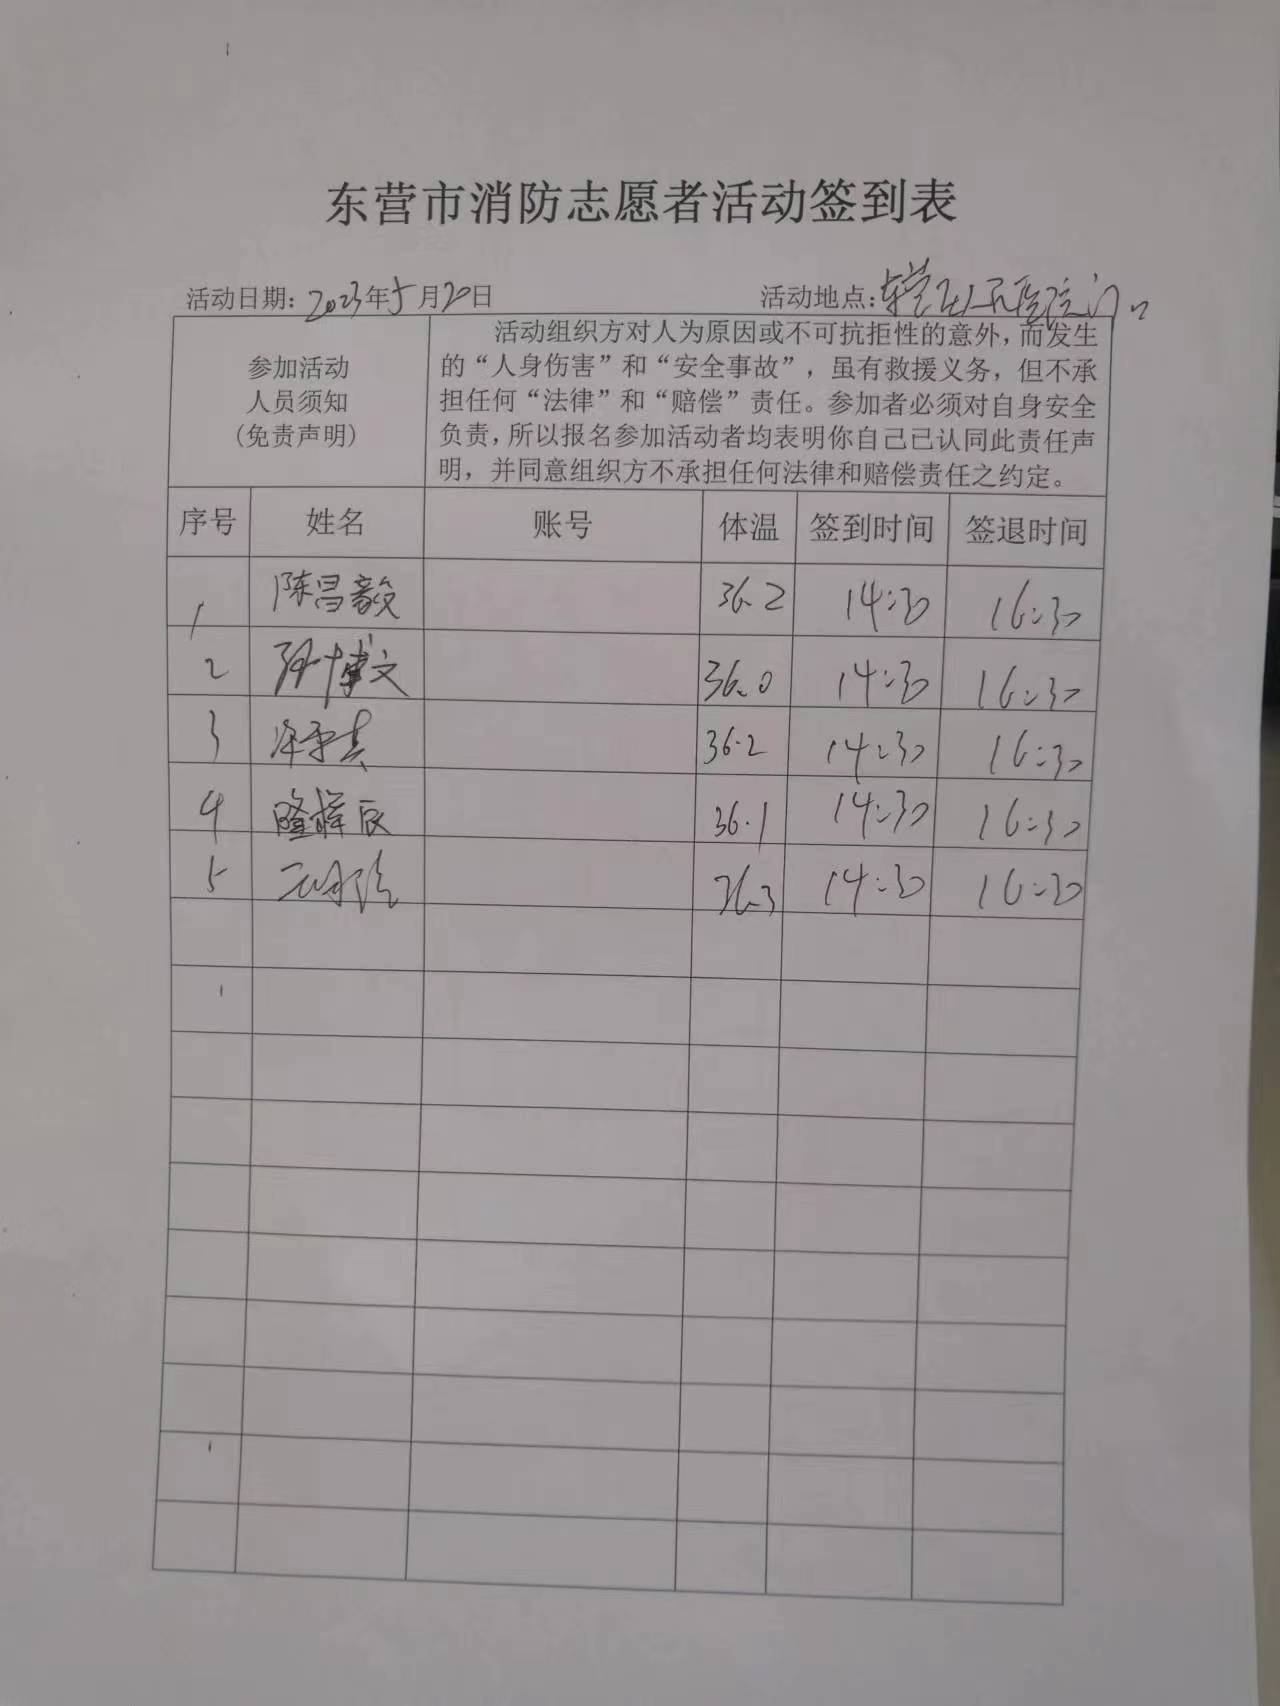 东营市消防志愿者活动签到表
活动日期：2023年5月20日 活动地点：东营区人民医院门口
参加活动
人员须知
（免责声明）
活动组织方对人为原因或不可抗拒性的意外，而发生
的“人身伤害”和“安全事故”，虽有救援义务，但不承
担任何“法律”和“赔偿”责任。参加者必须对自身安全
负责，所以报名参加活动者均表明你自己已认同此责任声
明，并同意组织方不承担任何法律和赔偿责任之约定。
序号 姓名 账号 体温 签到时间 签退时间
1 陈昌毅 36.2 14:30 16:30
2 孙博文 36.0 14:30 16:30
3 36.2 14:30 16:30
4 隆梓辰 36.1 14:30 16:30
5 36.3 14:30 16:30